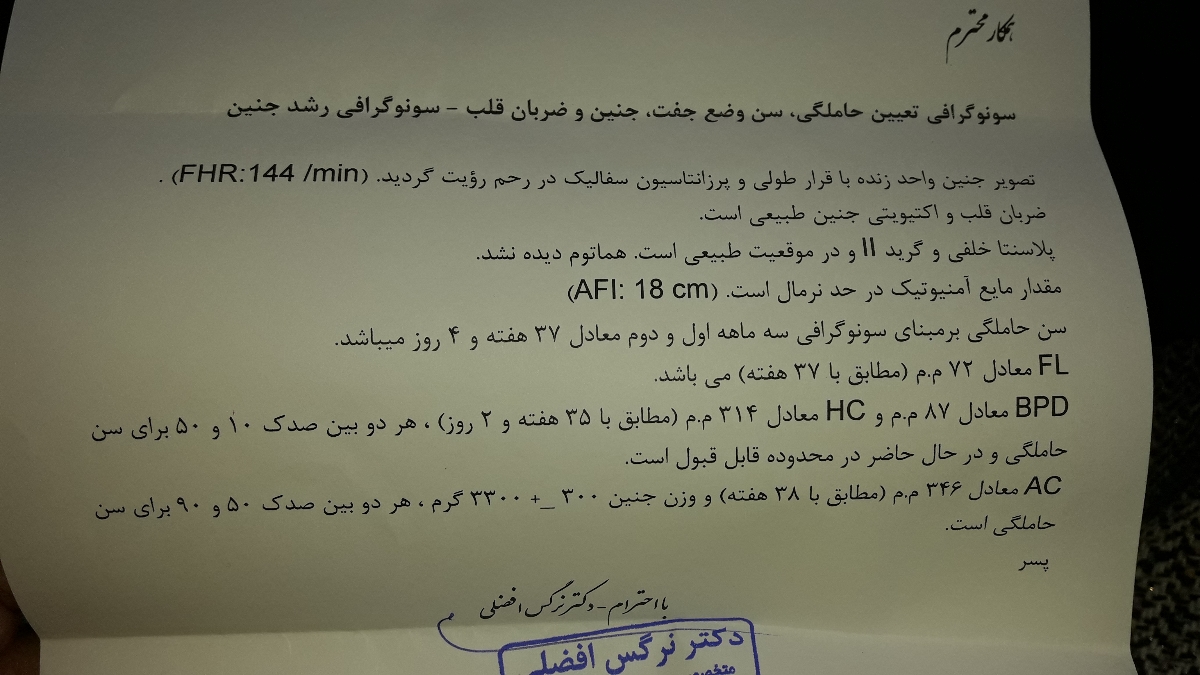 همکار محترم
سونوگرافی تعیین حاملگی، سن وضع جفت، جنین و ضربان قلب – سونوگرافی رشد جنین
تصویر جنین واحد زنده با قرار طولی و پرزانتاسیون سفالیک در رحم رؤیت گردید. (FHR:144 /min) .
ضربان قلب و اکتیویتی جنین طبیعی است.
پلاسنتا خلفی و گرید II و در موقعیت طبیعی است. هماتوم دیده نشد.
مقدار مایع آمنیوتیک در حد نرمال است. (AFI: 18 cm)
سن حاملگی برمبنای سونوگرافی سه ماهه اول و دوم معادل ۳۷ هفته و ۴ روز میباشد.
FL معادل ۷۲ م.م (مطابق با ۳۷ هفته) می باشد.
BPD معادل ۸۷ م.م و HC معادل ۳۱۴ م.م (مطابق با ۳۵ هفته و ۲ روز) ، هر دو بین صدک ۱۰ و ۵۰ برای سن
حاملگی و در حال حاضر در محدوده قابل قبول است.
AC معادل ۳۴۶ م.م (مطابق با ۳۸ هفته) و وزن جنین ۳۰۰ _+ ۳۳۰۰ گرم ، هر دو بین صدک ۵۰ و ۹۰ برای سن
حاملگی است.
پسر
با احترام - دکتر نرگس افضلی
دکتر نرگس افضلی